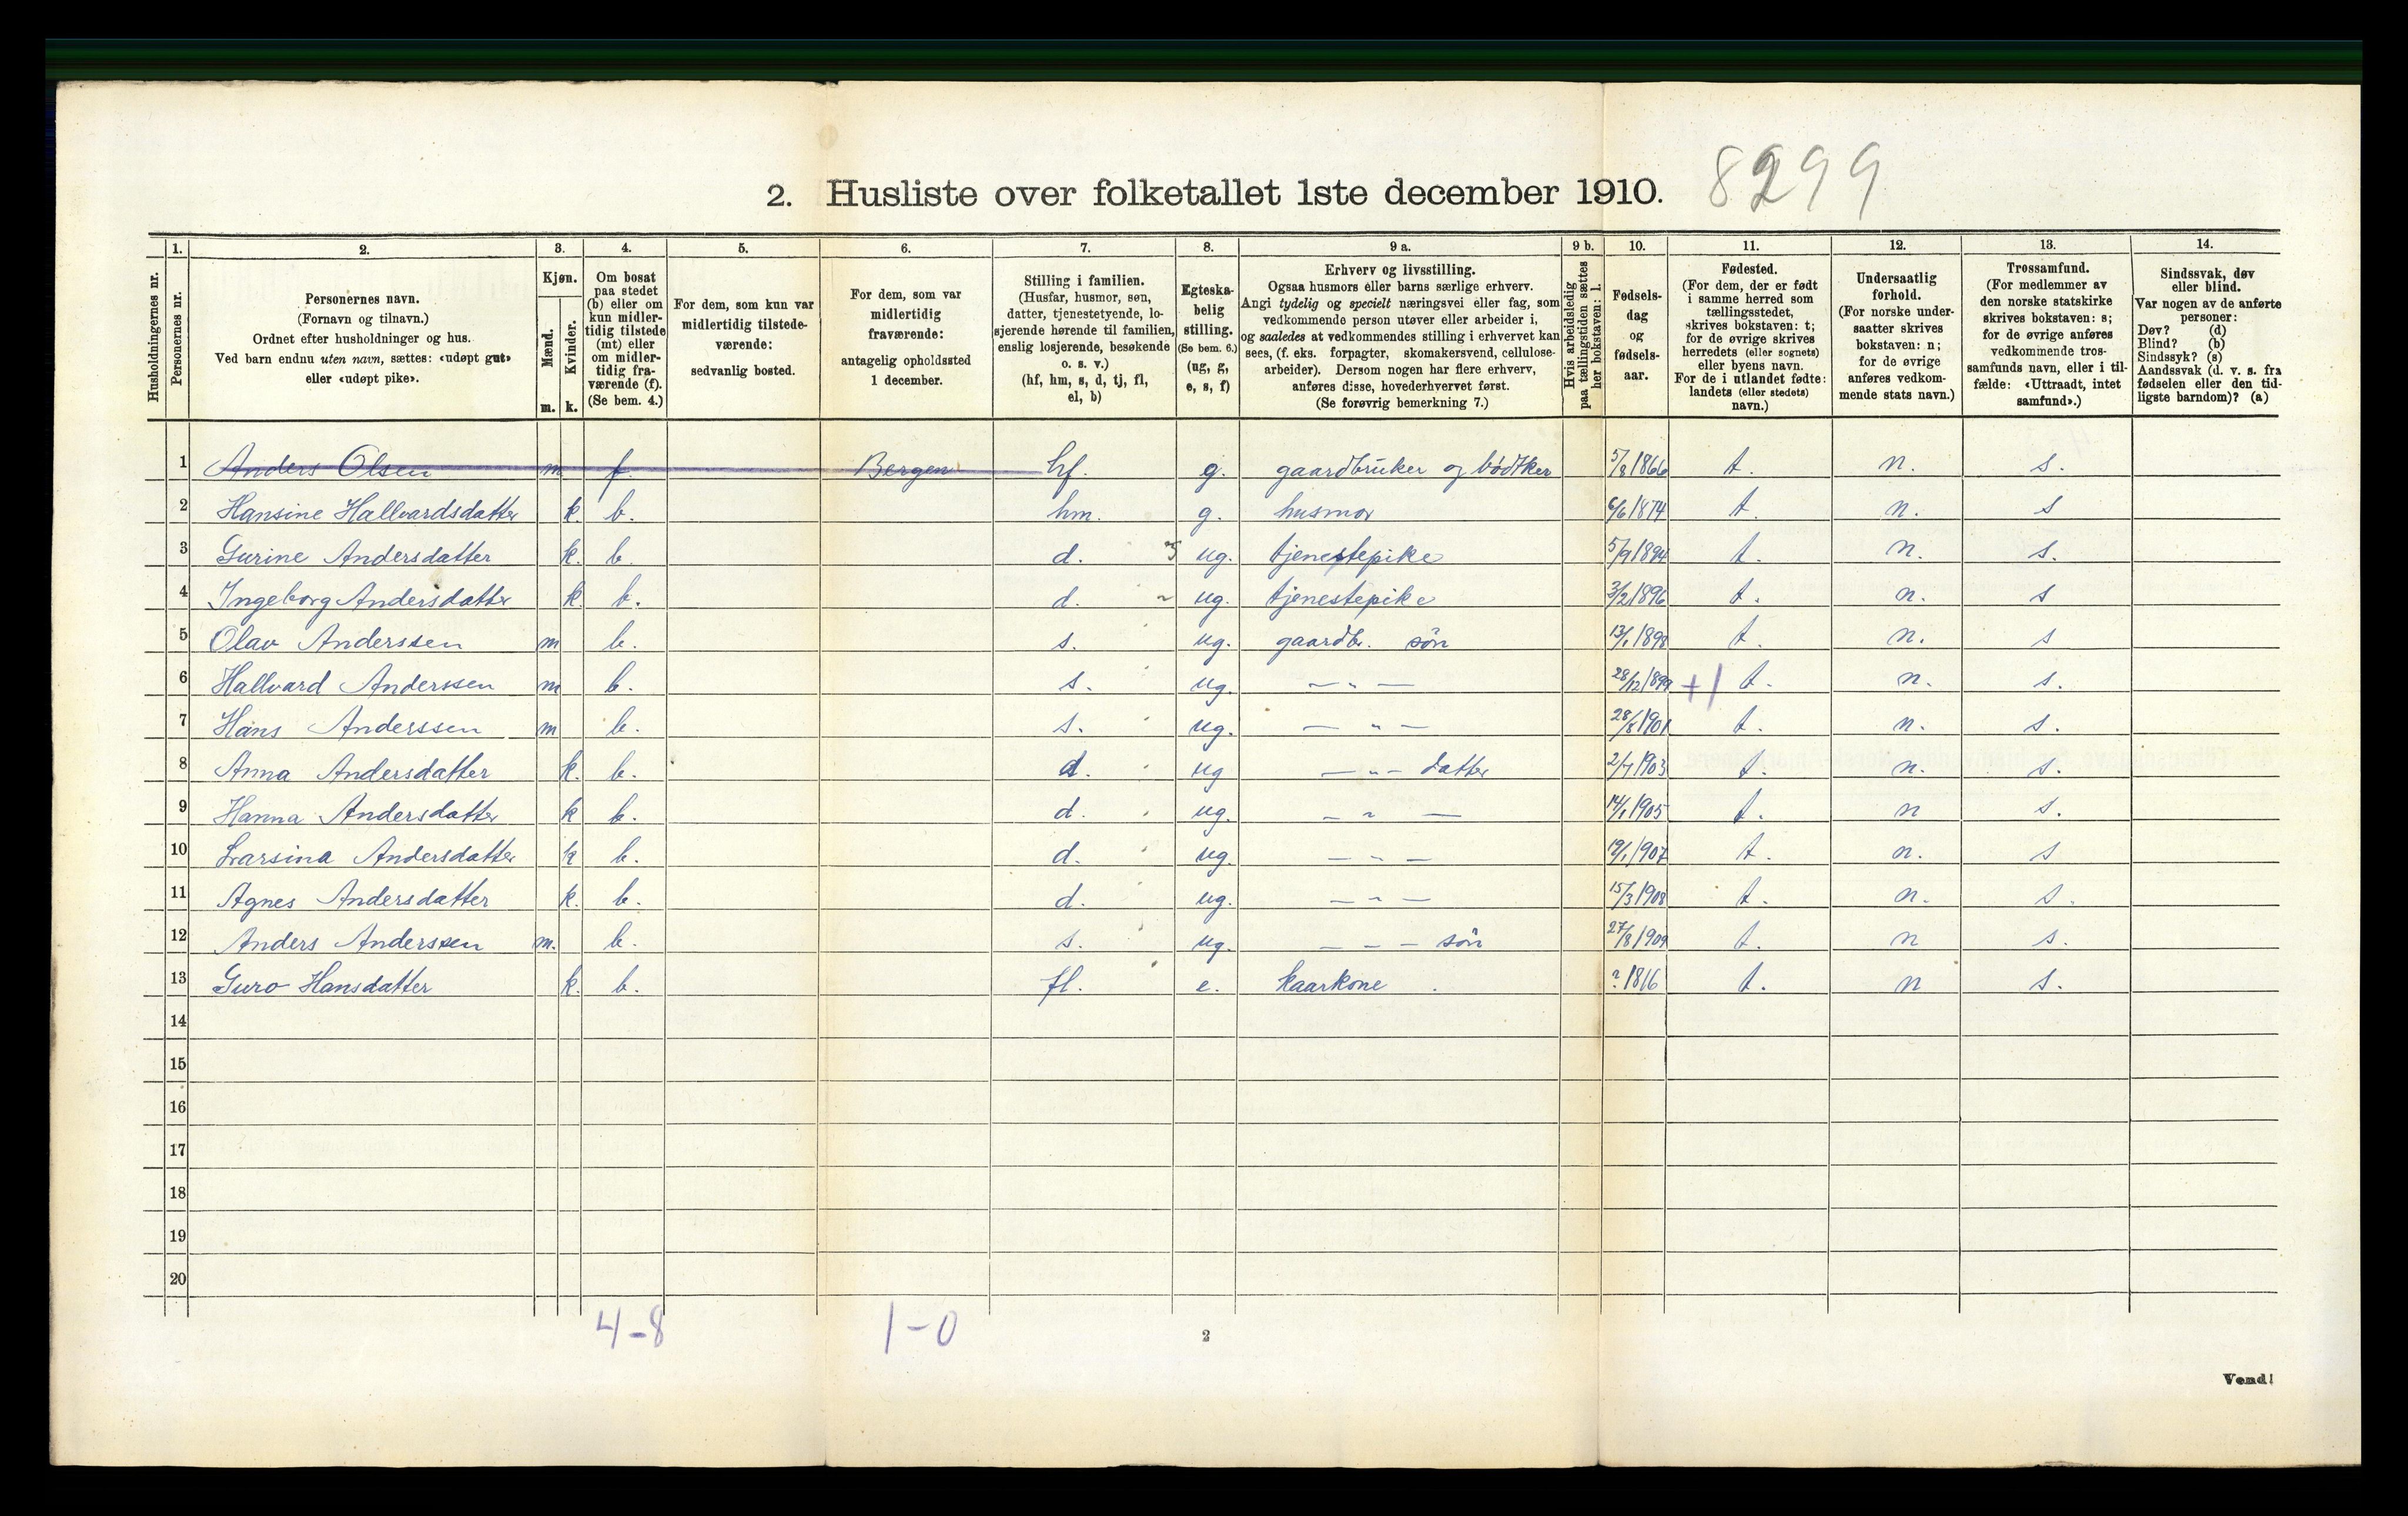 2. Husliste over folketallet 1ste december 1910. 8299
1. 2. 3. 4. 5. 6. 7. 8. 9 a. 9 b. 10. 11. 12. 13. 14.
Husholdningernes nr.
Personernes nr.
Personernes navn.
(Fornavn og tilnavn.)
Ordnet efter husholdninger og hus.
Ved barn endnu uten navn, sættes: «udøpt gut»
eller «udøpt pike».
Kjøn.
Mænd.
Kvinder.
m. k.
Om bosat
paa stedet
(b) eller om
kun midler-
tidig tilstede
(mt) eller
om midler-
tidig fra-
værende (f).
(Se bem. 4.)
For dem, som kun var
midlertidig tilstede-
værende:
sedvanlig bosted.
For dem, som var
midlertidig
fraværende:
antagelig opholdssted
1 december.
Stilling i familien.
(Husfar, husmor, søn,
datter, tjenestetyende, lo-
sjerende hørende til familien,
enslig losjerende, besøkende
o. s. v.)
(hf, hm, s, d, tj, fl,
el, b)
Egteska-
belig
stilling.
(Se bem. 6.)
(ug, g,
e, s, f)
Erhverv og livsstilling.
Ogsaa husmors eller barns særlige erhverv.
Angi tydelig og specielt næringsvei eller fag, som
vedkommende person utøver eller arbeider i,
og saaledes at vedkommendes stilling i erhvervet kan
sees, (f. eks. forpagter, skomakersvend, cellulose-
arbeider). Dersom nogen har flere erhverv,
anføres disse, hovederhvervet først.
(Se forøvrig bemerkning 7.)
Hvis arbeidsledig
paa tællingstiden sættes
her bokstaven: l.
Fødsels-
dag
og
fødsels-
aar.
Fødested.
(For dem, der er født
i samme herred som
tællingsstedet,
skrives bokstaven: t;
for de øvrige skrives
herredets (eller sognets)
eller byens navn.
For de i utlandet fødte:
landets (eller stedets)
navn.)
Undersaatlig
forhold.
(For norske under-
saatter skrives
bokstaven: n;
for de øvrige
anføres vedkom-
mende stats navn.)
Trossamfund.
(For medlemmer av
den norske statskirke
skrives bokstaven: s;
for de øvrige anføres
vedkommende tros-
samfunds navn, eller i til-
fælde: «Uttraadt, intet
samfund».)
Sindssvak, døv
eller blind.
Var nogen av de anførte
personer:
Døv? (d)
Blind? (b)
Sindssyk? (s)
Aandssvak (d. v. s. fra
fødselen eller den tid-
ligste barndom)? (a)
1 Anders Olsen m f. Bergen hf. g. gaardbruker og bødtker 5/8 1866 t. n. s.
2 Hansine Hallvardsdatter k. b. hm. g. husmor 6/6 1874 t. n. s
3 Gurine Andersdatter k. b. d. ug. tjenestepike 5/9 1894 t. n. s.
4 Ingeborg Andersdatter k b. d. ug. tjenestepike 3/2 1896 t. n. s
5 Olav Anderssen m b. s. ug. gaardb. søn 13/1 1898 t. n. s
6 Hallvard Anderssen m b. s. ug. — " — 28/12 1899 +1 t. n. s.
7 Hans Anderssen m b. s. ug. — " — 28/8 1901 t. n. s.
8 Anna Andersdatter k. b. d. ug — " — datter 2/7 1903 t. n. s.
9 Hanna Andersdatter k b. d. ug. — " — 14/1 1905 t. n s.
10 Larsina Andersdatter k b. d. ug. — " — 19/1 1907 t. n. s
11 Agnes Andersdatter k. b. d. ug. — " — 15/3 1908 t. n. s.
12 Anders Anderssen m. b. s. ug. — — — søn 27/8 1909 t. n s.
13 Guro Hansdatter k. b. fl. e. kaarkone. ? 1816 t. n s.
14
15
16
17
18
19
20
4-8 1-0
2
Vend!